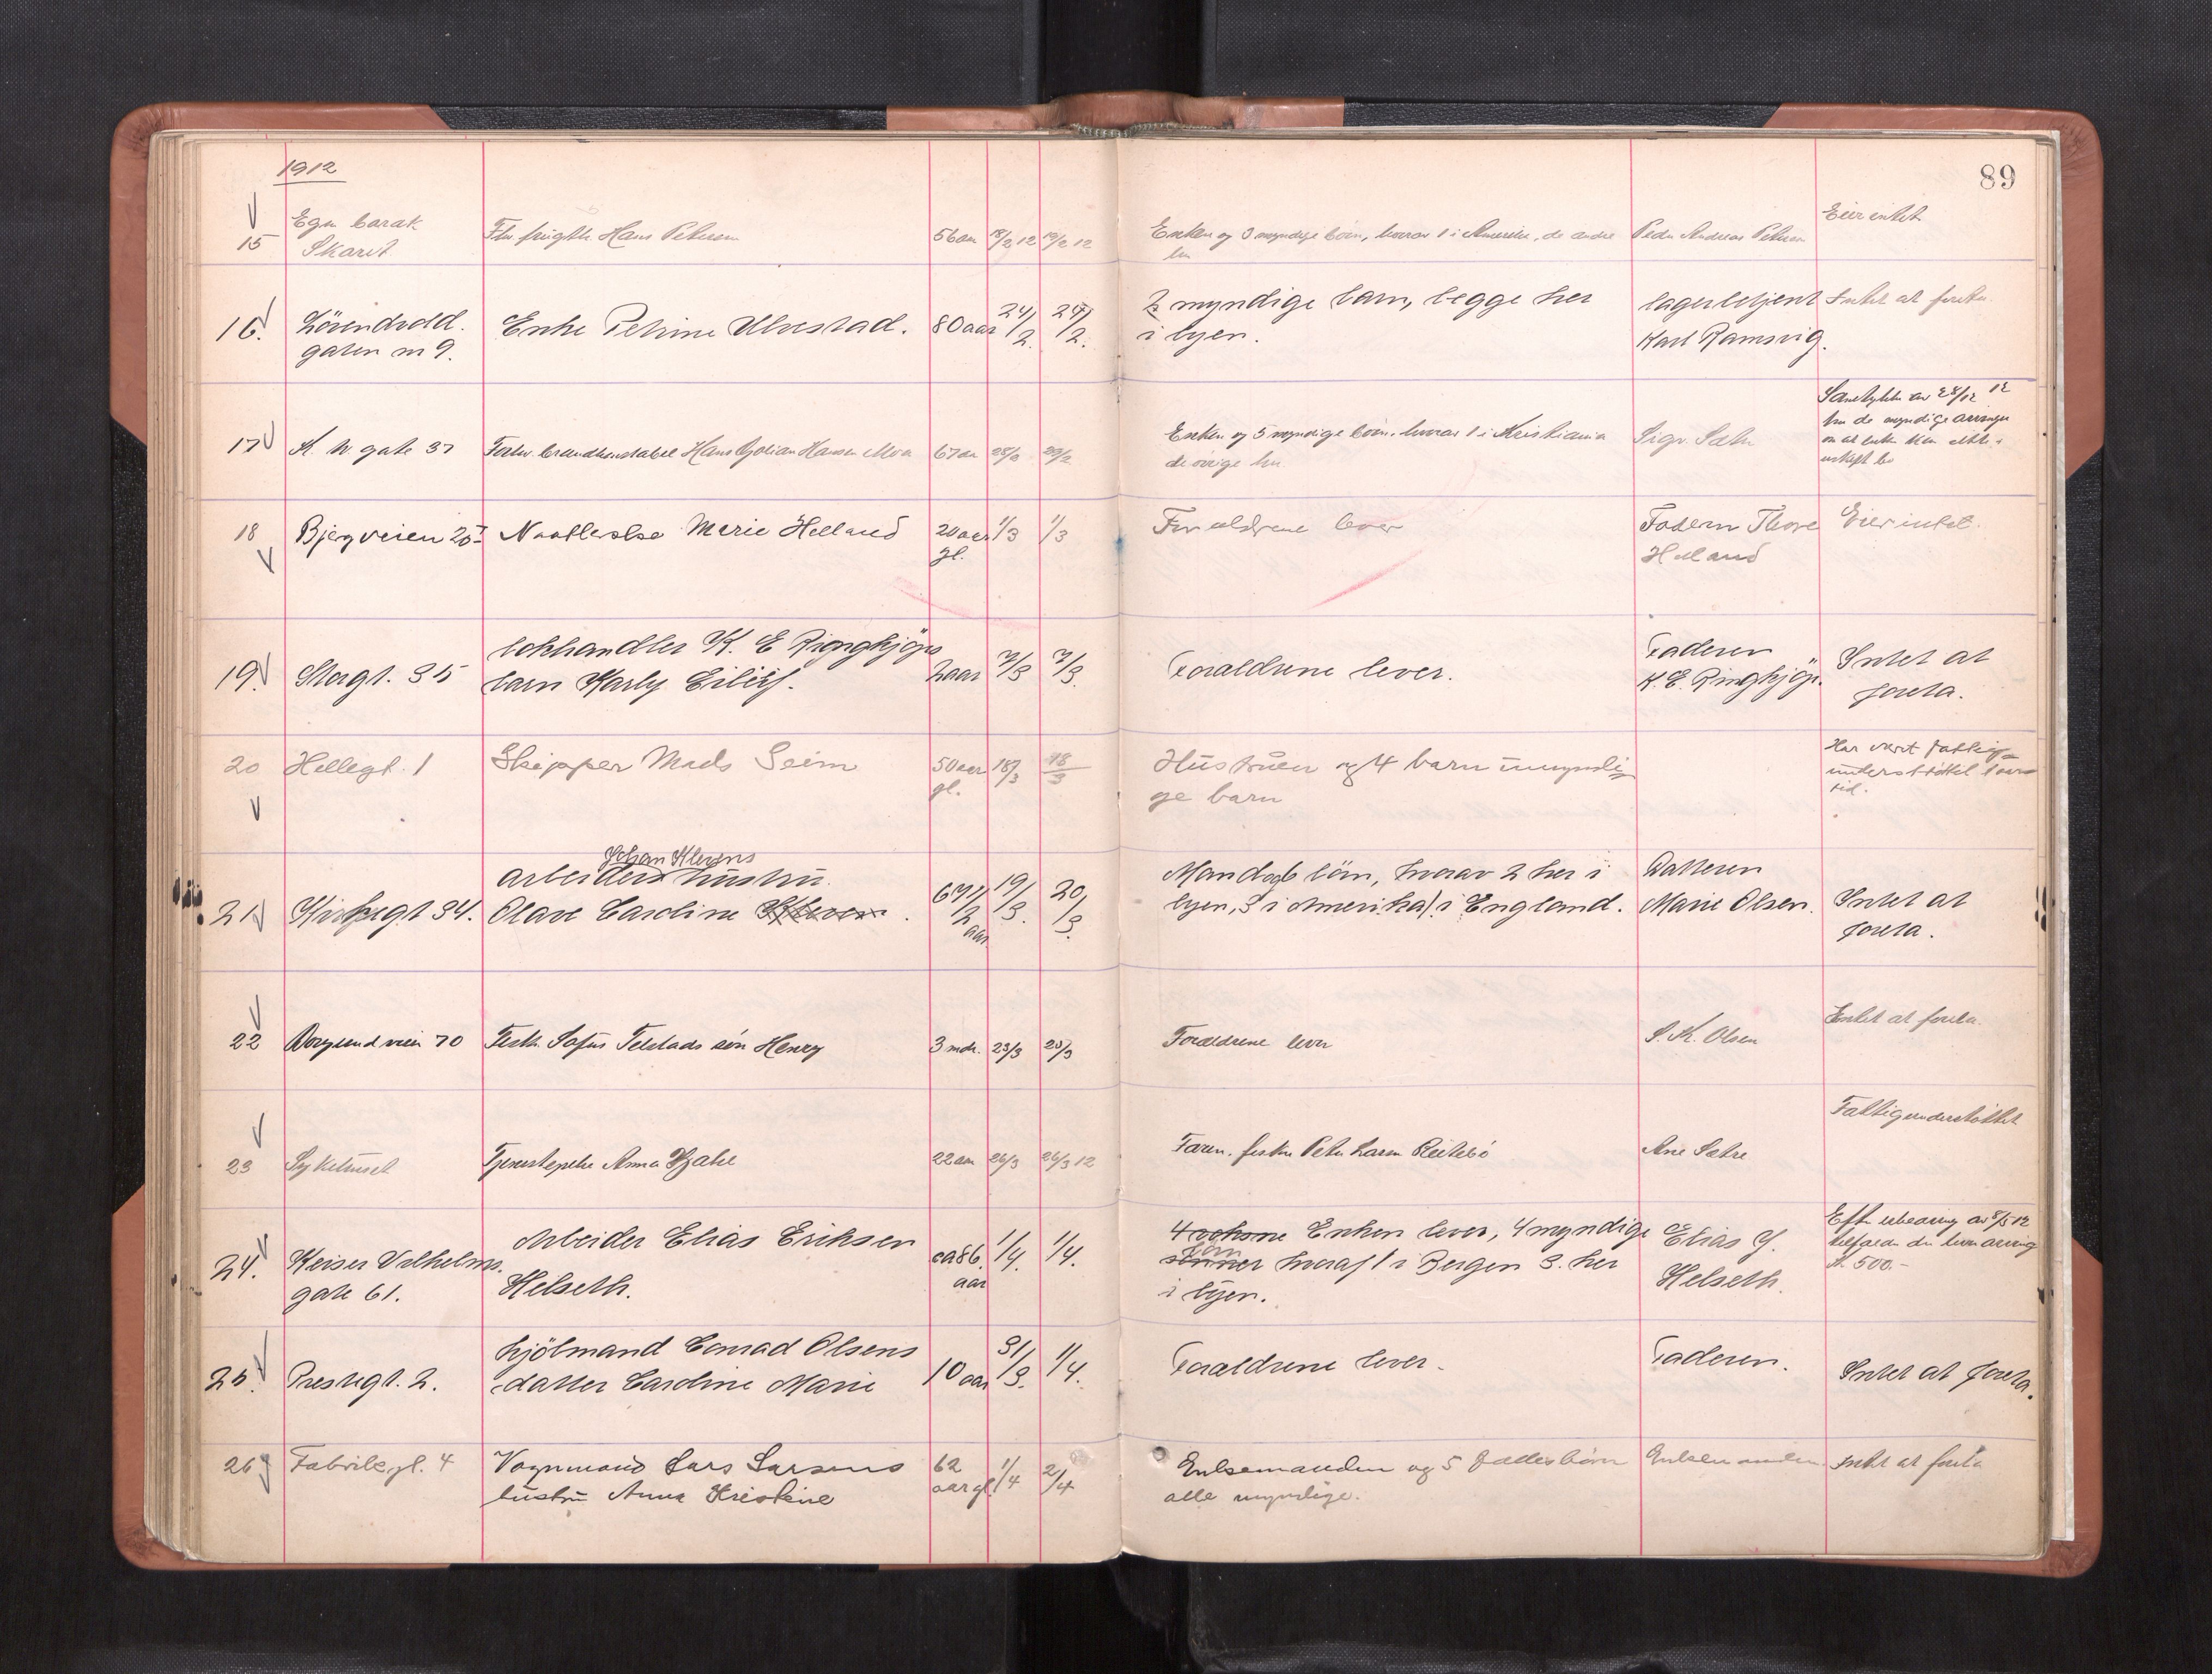 1912
89
15 Egn barak
Skarit
Hans Petersen 56 aar 18/2 12 19/2 12
Enken og 3 myndige börn, hvorav 1 i Amerika, de andre
her
Peder Andreas Petersen
Eier intet
16. Lörendvold.
gaten nr 9.
Enke Petrine Ulvestad. 80 aar 24/2 24/2.
2 myndige barn, begge her
i byen.
lagerbetjent
Karl Ramsvig.
Intet at foreta
17 K. W. gate 37 Forhv. brandkonstabel Hans Hansen Moa 67 aar 28/2 29/2
Enken og 5 myndige börn, hvorav 1 i Kristiania
de övrige her
Sigv. Sæter
Samtykke av 28/12 12
fra de myndige arvinger
om at enken sitter
uskiftet bo
18 Bjergveien 20 I Naatlerske Marie Helland 20 aar
gl. 1/3 1/3
Forældrene lever
Faderen Thore
Helland
Eier intet.
19. Storgt. 35 bokhandler K. E Ringkjöps
barn Karly Eiliif. 2 aar 7/3 7/3.
Forældrene lever.
Faderen
K. E. Ringkjöp.
Intet at
foreta.
20 Hellegt. 1 Skipper Mads Seim 50 aar
gl. 18/3 18/3
Hustruen og 4 barn umyndi=
ge barn
Har været fattig=
understöttet
tid.
Johan Klevens
21 Kirkegt 34. arbeiders hustru.
Olave Caroline Kleven. 67 1/2
aar 19/3. 20/3.
Mand og 6 börn, hvorav 2 her i
byen, 3 i Amerika, 1 i England.
Datteren
Marie Olsen.
Intet at
foreta.
22 Borgundveien 70 Fisk. Sofus Telstads sön Henry 3 mdr. 23/3 23/3
Forældrene lever
S. K. Olsen
Intet at foreta.
23 Sykehuset Tjenestepike Anna 22 aar 26/3 26/3 12
Faren. fisker Peter Larsen Reitebö
Ane Sætre
Fattigunderstöttet
24. Keiser Vilhelms.
gate 61.
Arbeider Elias Eriksen
Helseth. ca 86.
aar 1/4. 1/4.
4 voksne Enken lever, 4 myndige
sönner börn hvoraf 1 i Bergen 3. her
i byen.
Elias J.
Helseth.
Efter utbearing av 8/5 12
arving
kr. 500.-
25. Prestegt. 2. hjölmand Conrad Olsens
datter Caroline Marie 10 aar 31/3. 1/4.
Forældrene lever.
Faderen.
Intet at foreta.
26 Fabrikgt. 4 Vognmand Lars Larsens
hustru Anna Kristine 62
aar gl. 1/4 2/4
Enkemanden og 5 fælles börn
alle myndige.
Enkemanden
Intet at foreta